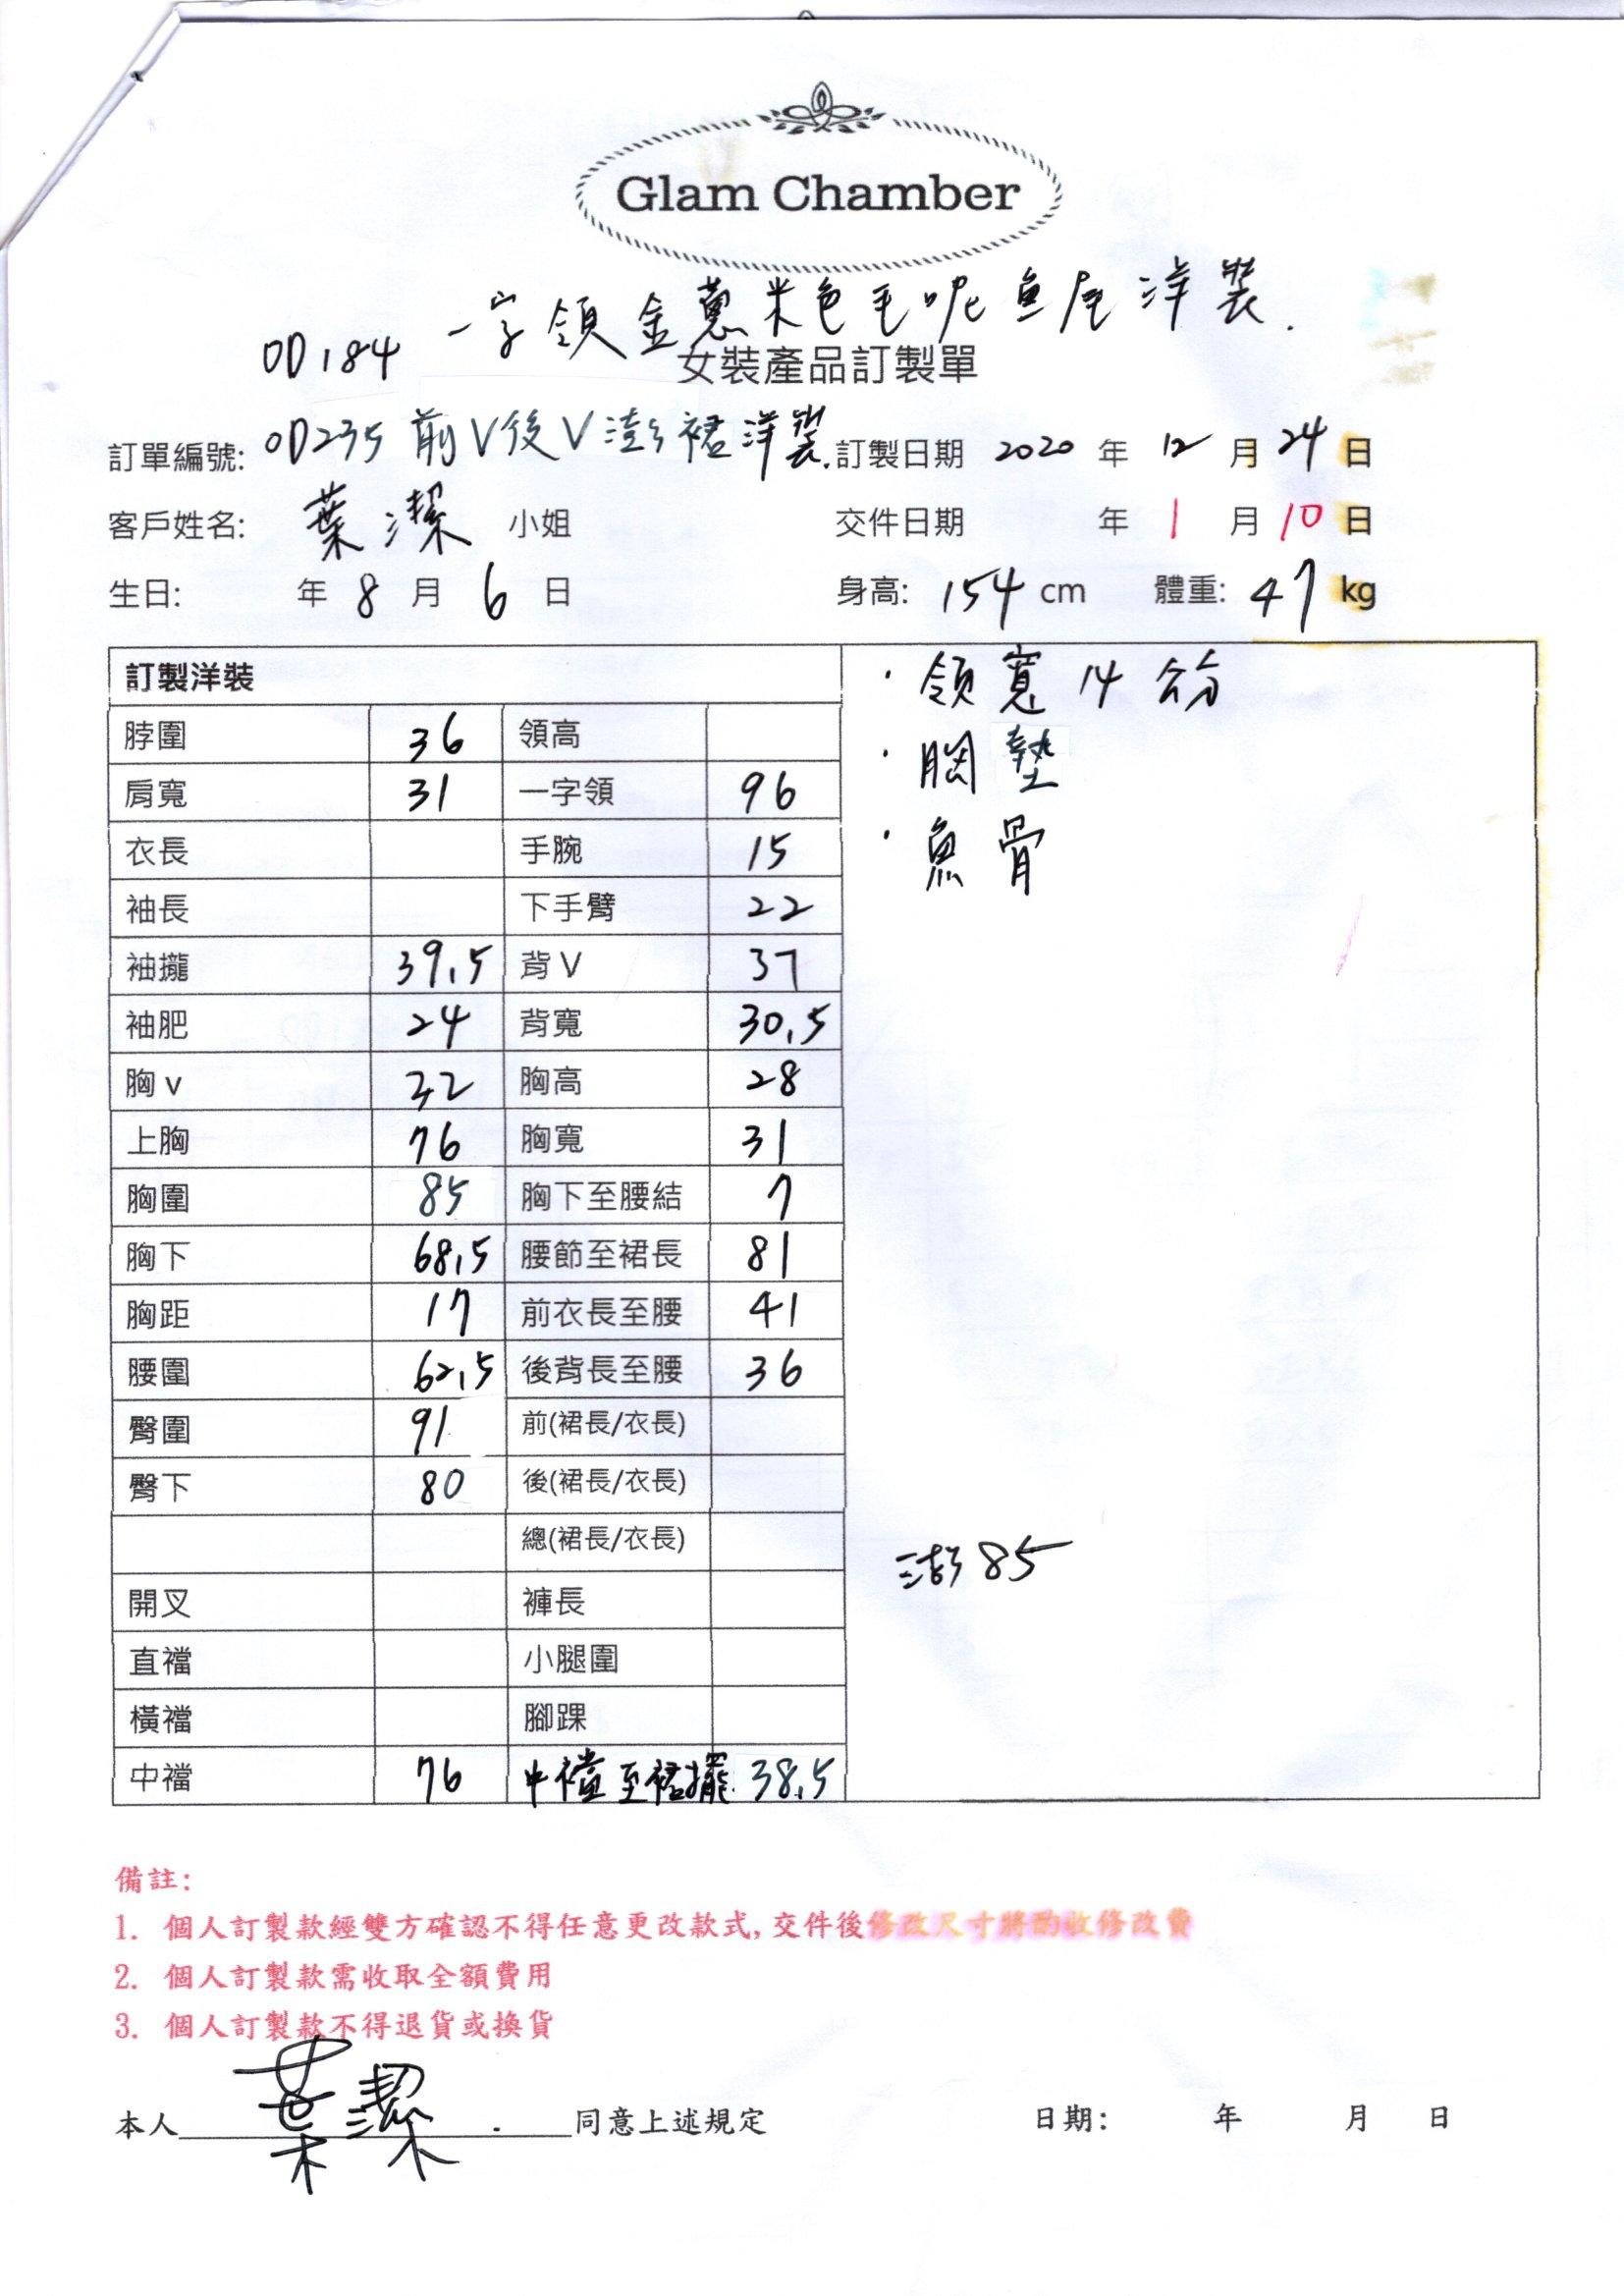 Glam Chamber
OD184 一字領金蔥米色毛呢魚尾洋裝.
女裝產品訂製單
訂單編號: OD235 前V後V澎裙洋裝. 訂製日期 2020 年 12 月 24 日
客戶姓名: 葉潔 小姐 交件日期 年 1 月 10 日
生日: 年 8 月 6 日 身高: 154 cm 體重: 47 kg
訂製洋裝
脖圍 36 領高
肩寬 31 一字領 96
衣長 手腕 15
袖長 下手臂 22
袖攏 39.5 背V 37
袖肥 24 背寬 30.5
胸v 32 胸高 28
上胸 76 胸寬 31
胸圍 85 胸下至腰結 7
胸下 68.5 腰節至裙長 81
胸距 17 前衣長至腰 41
腰圍 62.5 後背長至腰 36
臀圍 91 前(裙長/衣長)
臀下 80 後(裙長/衣長)
總(裙長/衣長)
開叉 褲長
直襠 小腿圍
橫襠 腳踝
中襠 76 中襠至裙擺 38.5
·領寬14公分
·胸墊
·魚骨
澎85
備註:
1. 個人訂製款經雙方確認不得任意更改款式,交件後修改尺寸將酌收修改費
2. 個人訂製款需收取全額費用
3. 個人訂製款不得退貨或換貨
本人 葉潔 同意上述規定 日期: 年 月 日